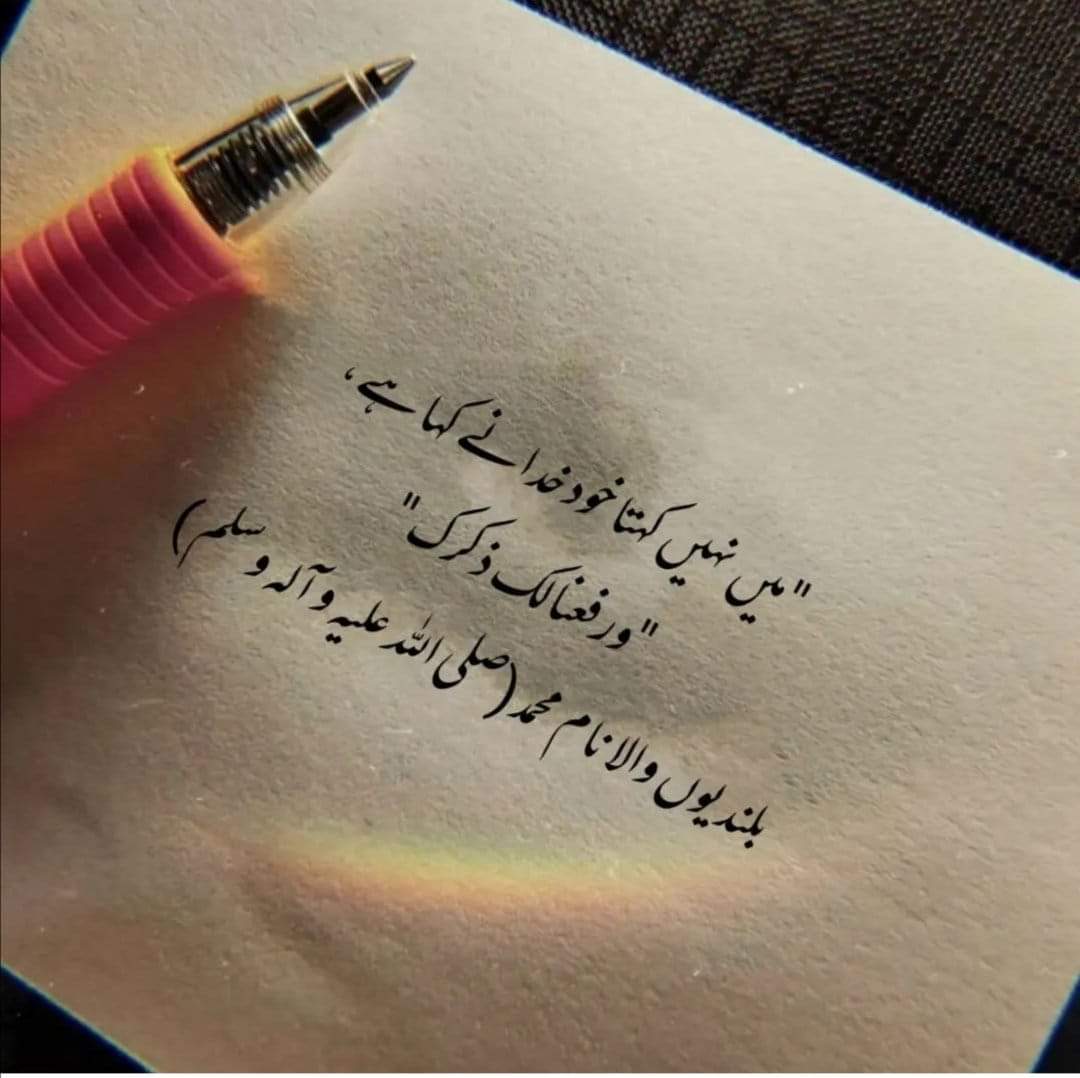 "میں نہیں کہتا خود خدا نے کہا ہے،
"ورفعنالک ذکرک"
بلندیوں والا نام محمد (صلی اللہ علیہ وآلہ وسلم)